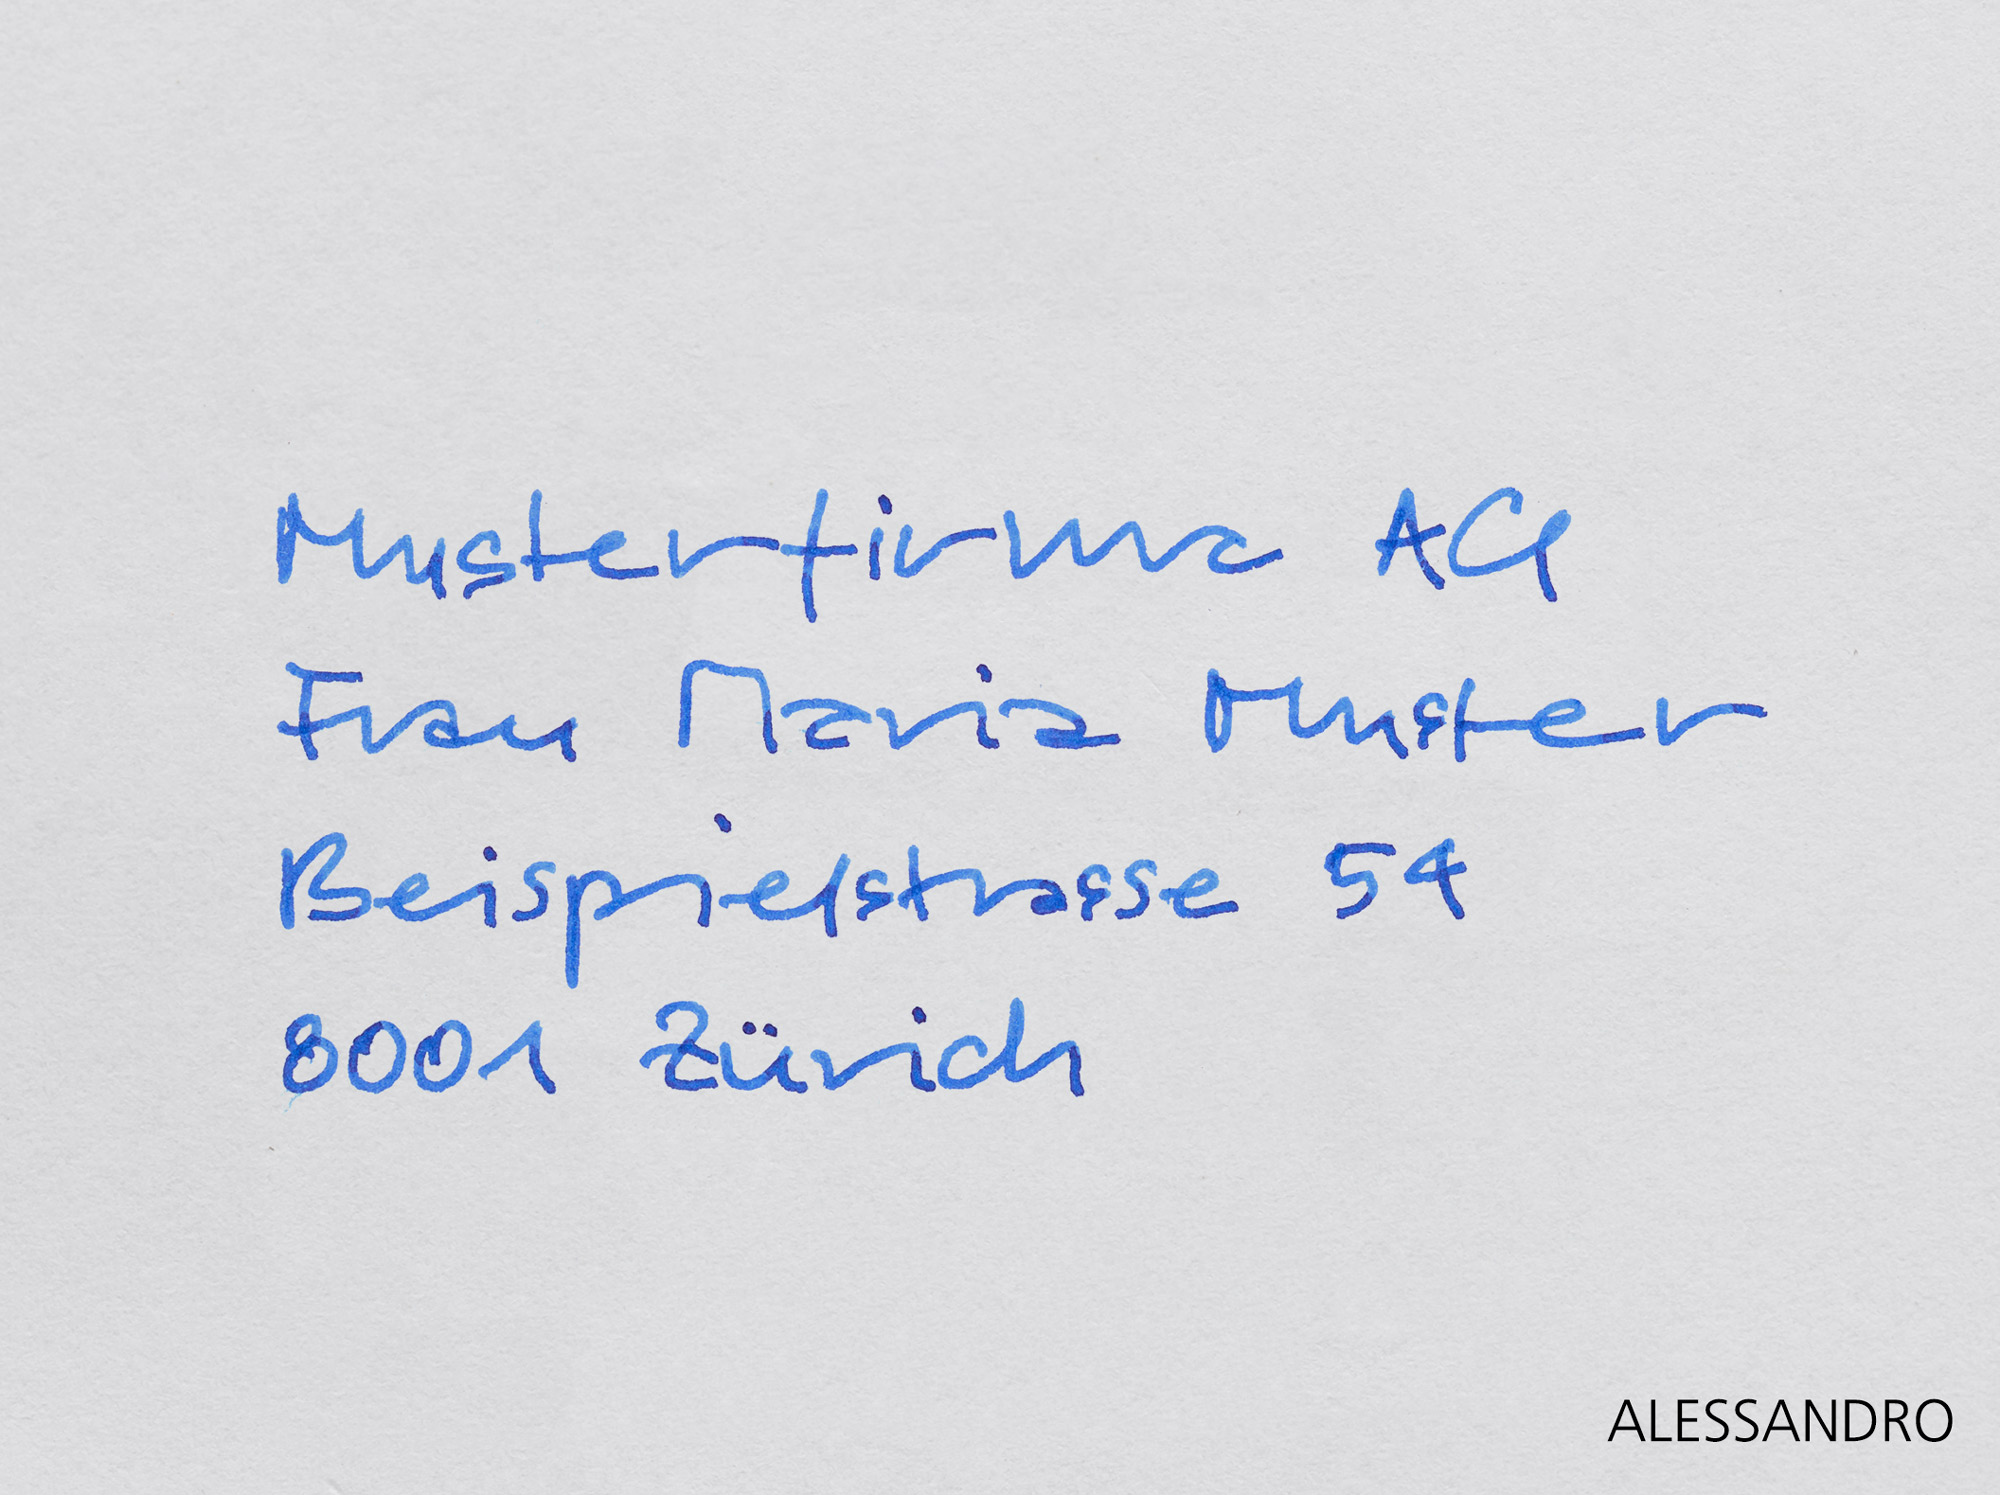 Musterfirma AG
Frau Maria Muster
Beispielstrasse 54
8001 Zürich
ALESSANDRO